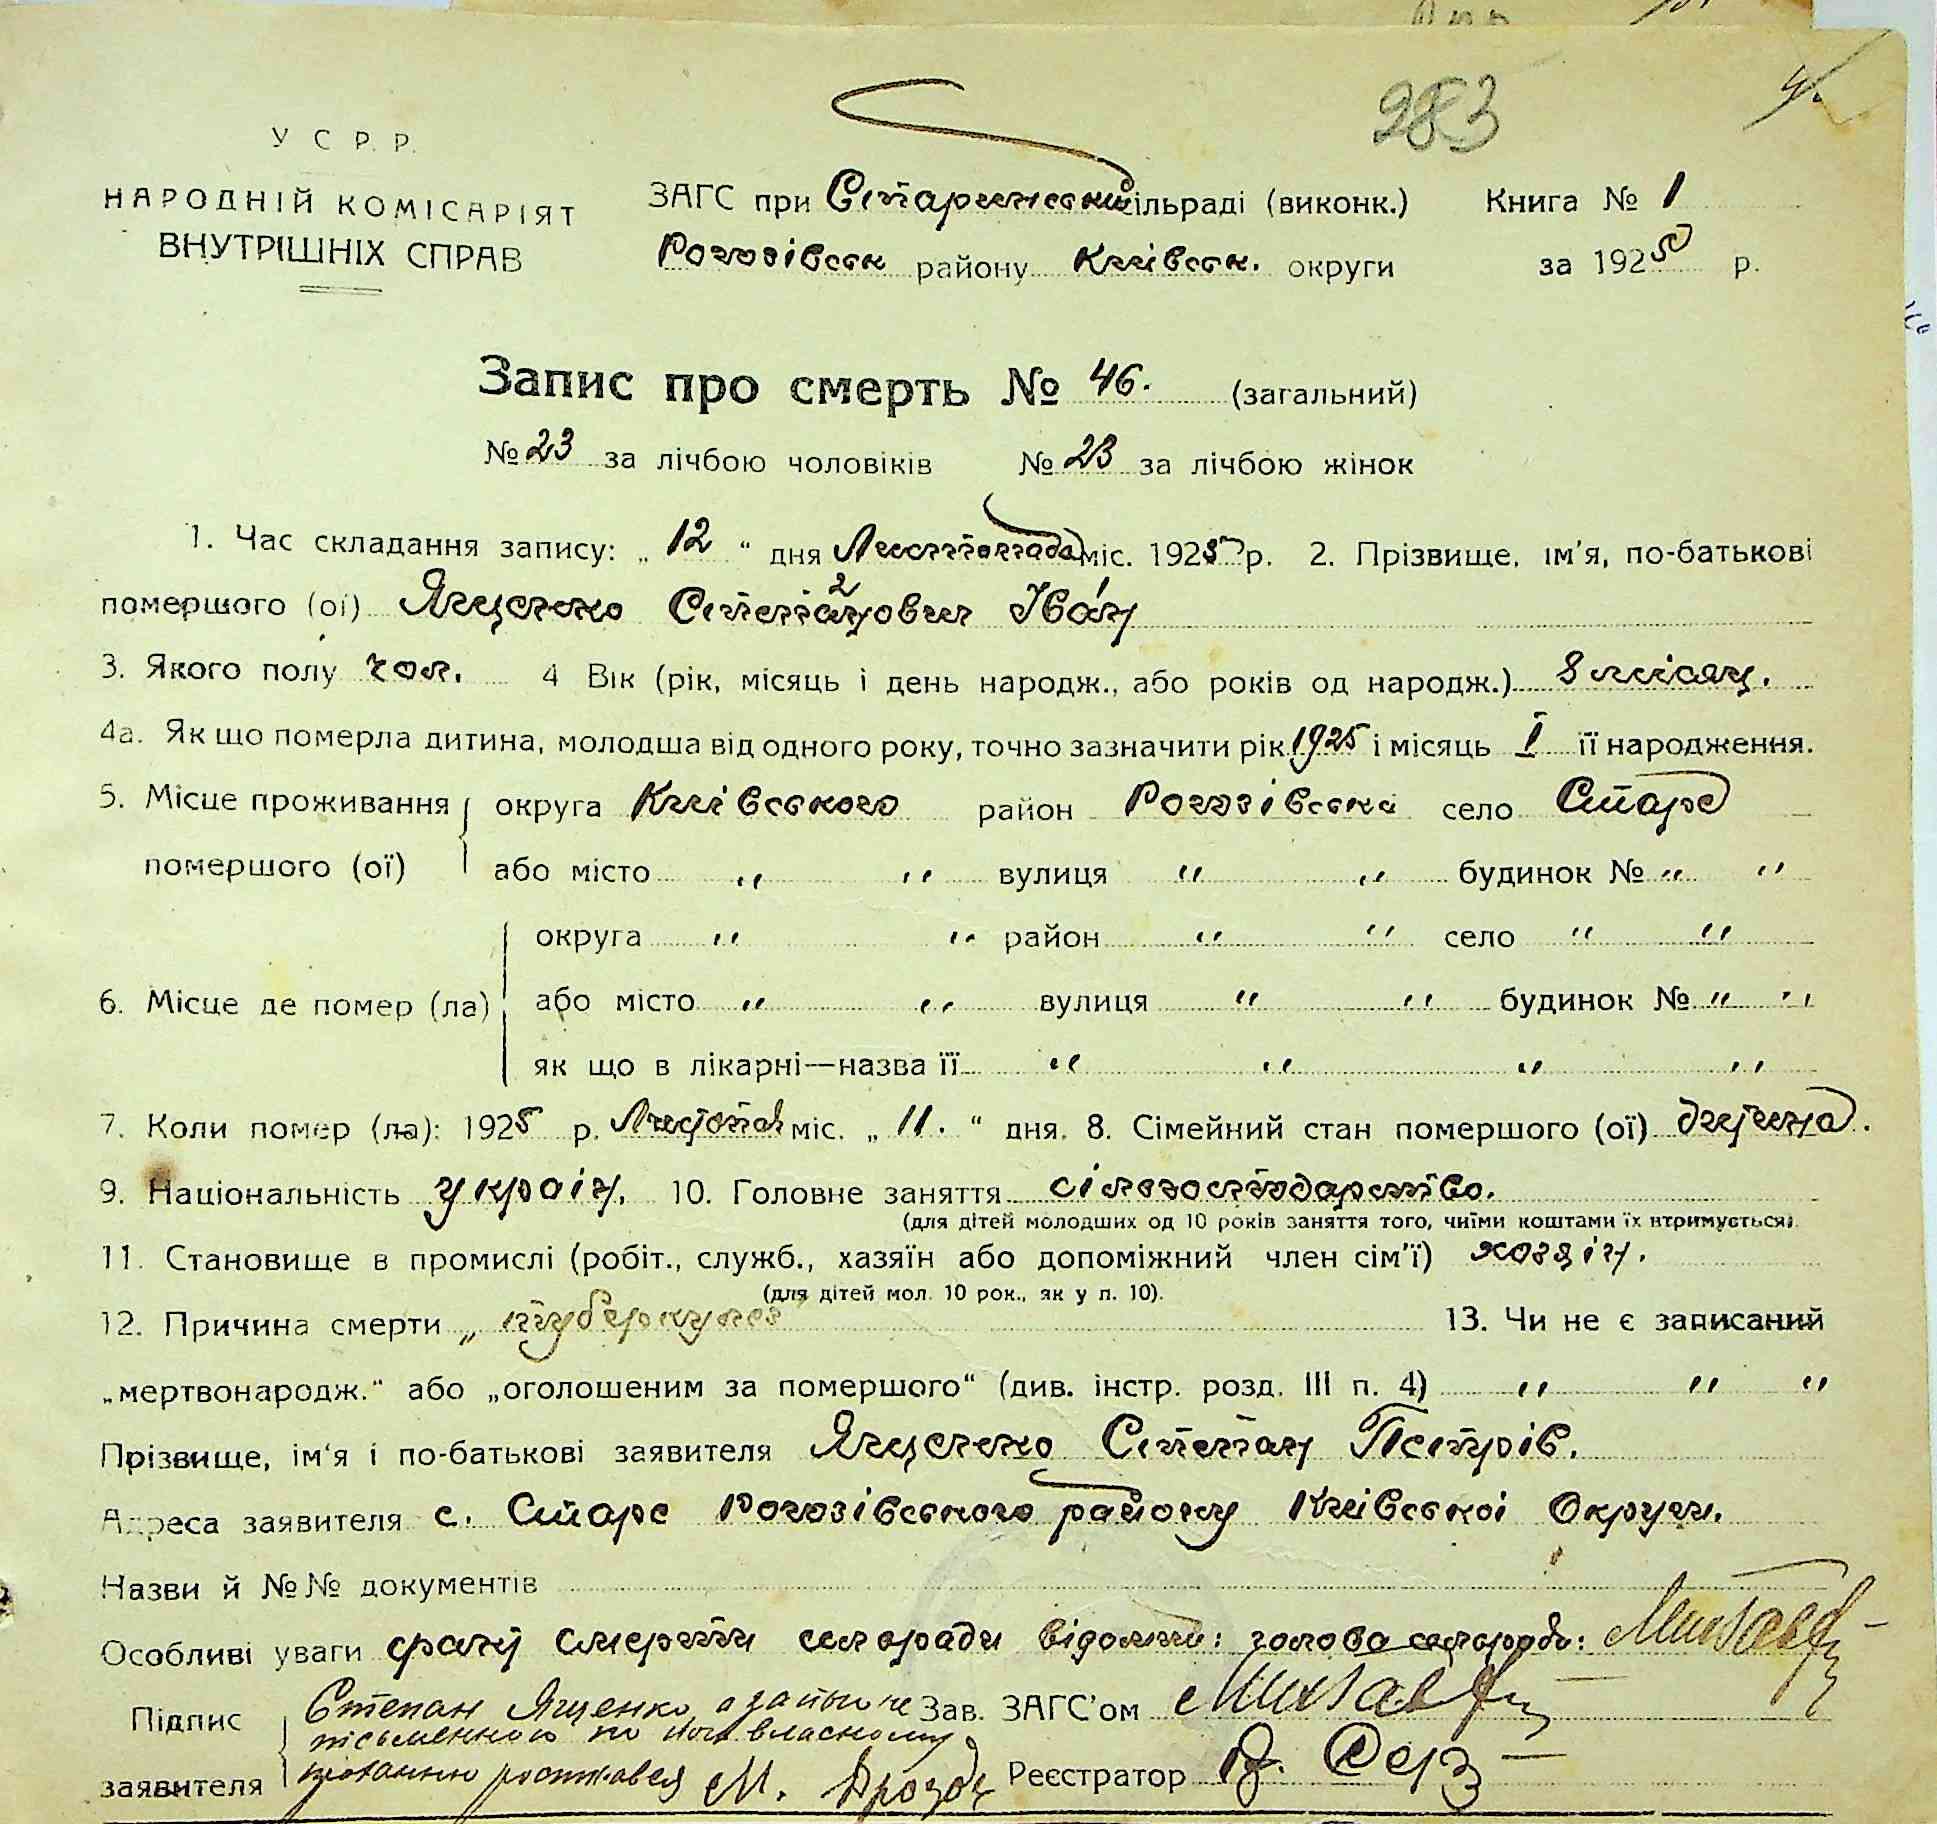 283
У С Р. Р.
НАРОДНІЙ КОМІСАРІЯТ
ВНУТРІШНІХ СПРАВ
ЗАГС при Старинській сільраді (виконк.) Книга № 1
Рогозівськ району Київськ. округи за 1925 р.
Запис про смерть № 46. (загальний)
№ 23 за лічбою чоловіків № 23 за лічбою жінок
1. Час складання запису: „ 12 “ дня Листопада міс. 1925 р. 2. Прізвище, ім'я, по-батькові
помершого (ої) Ященко Степанович 2 Іван
3. Якого полу чол. 4 Вік (рік, місяць і день народж., або років од народж.) 8 місяц.
4а. Як що померла дитина, молодша від одного року, точно зазначити рік 1925 і місяць I її народження.
5. Місце проживання округа Київського район Рогозівськи село Старе
помершого (ої) або місто „ „ вулиця „ „ будинок № „ „
округа „ „ район „ „ село „ „
6. Місце де помер (ла) або місто „ „ вулиця „ „ будинок № „ „
як що в лікарні—назва її „ „ „ „
7. Коли помер (ла): 1925 р. Листопад міс. „ 11. “ дня. 8. Сімейний стан помершого (ої) дитина.
9. Національність україн. 10. Головне заняття сільгосподарство.
(для дітей молодших од 10 років заняття того, чиїми коштами їх втримується).
11. Становище в промислі (робіт., служб., хазяїн або допоміжний член сім'ї) хозяін.
(для дітей мол. 10 рок., як у п. 10).
12. Причина смерти „ туберкульоз 13. Чи не є записаний
„мертвонародж.“ або „оголошеним за помершого“ (див. інстр. розд. III п. 4) „ „ „
Прізвище, ім'я і по-батькові заявителя Ященко Степан Петрів.
Адреса заявителя с. Старе Рогозівського району Київської Округи.
Назви й №№ документів
Особливі уваги факт смерти сельради відомий: голова сельради:
Підпис Степан Ященко, а за його не Зав. ЗАГС'ом
письменного по його власному
заявителя проханню росписався М. Дрозд Реєстратор